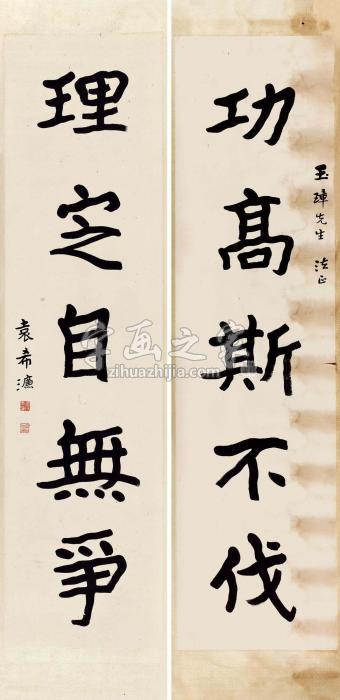 玉璋先生 法正
功高斯不伐
理定自無爭
袁希濂
字画之家
zihuazhijia.com